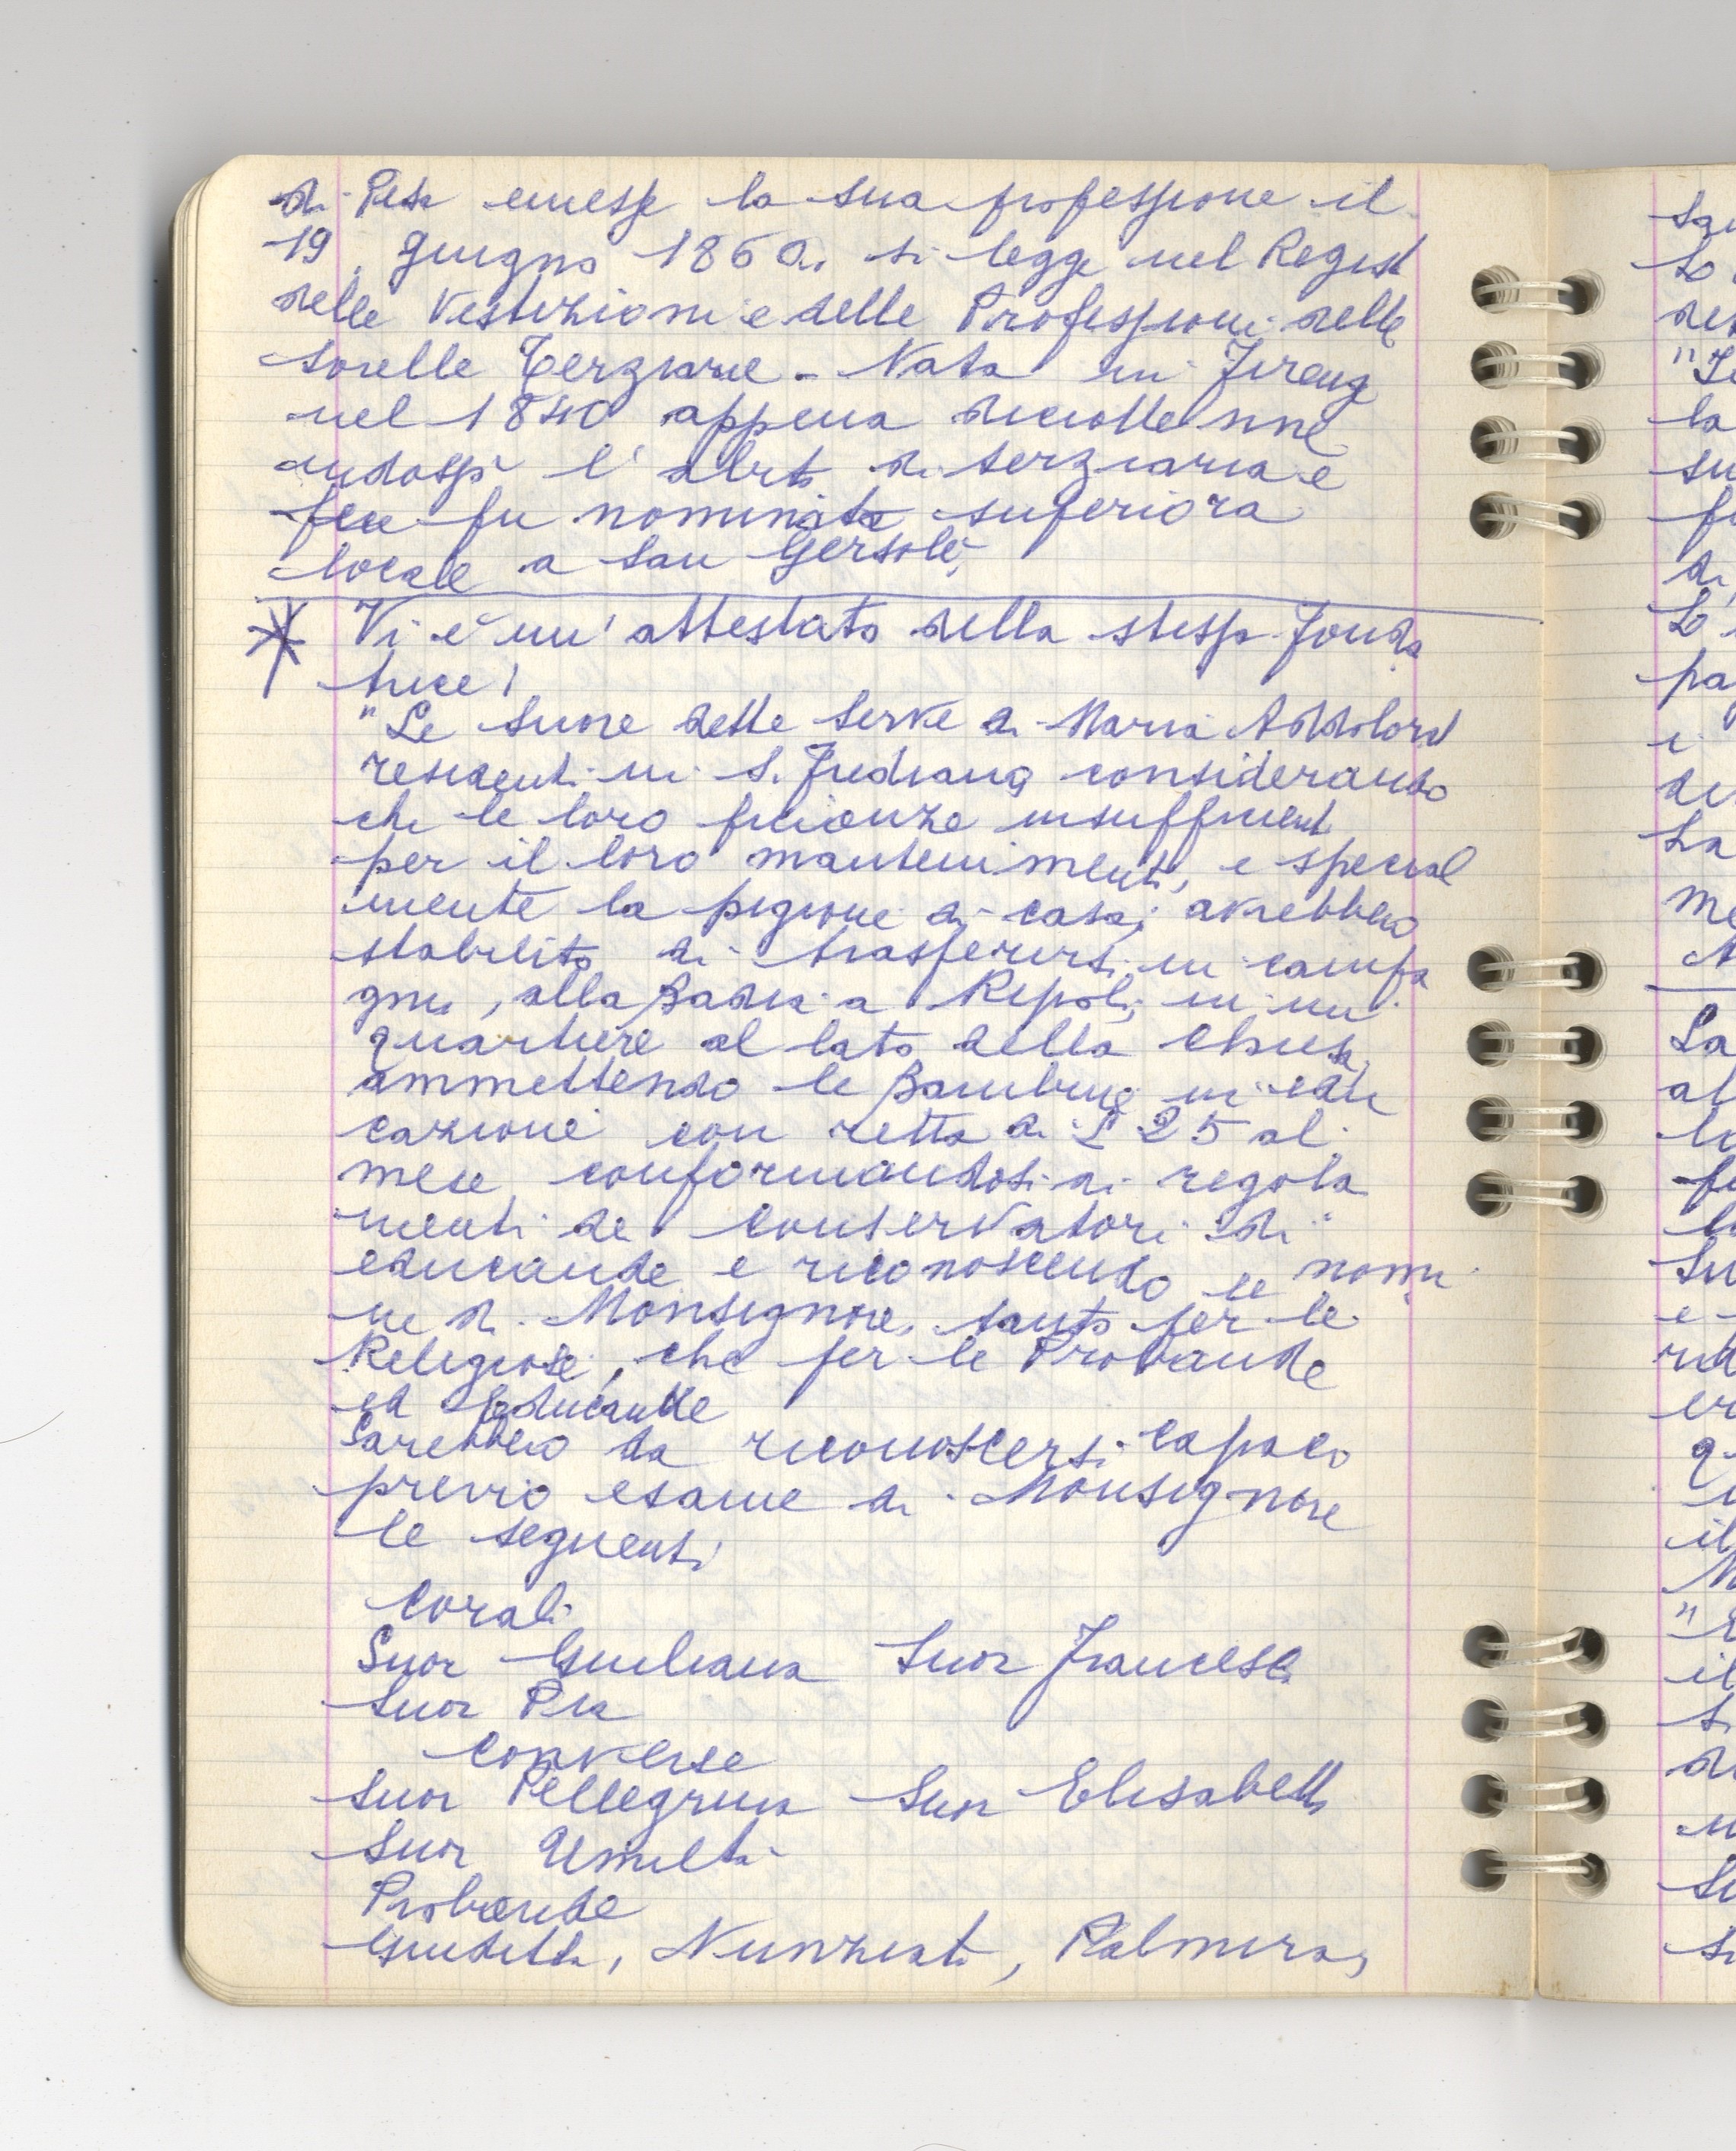 di Pesa emesse la sua professione il
19. giugno 1860. si legge nel Regist
delle Vestizioni e delle Professioni delle
sorelle Terziarie - Nata in Firenz
nel 1840 appena diciottenne
indossò l'abito di terziaria e
fu nominata superiora
locale a San Gersolè,
Vi è un' attestato della stessa Fonda
trice!
"Le Suore delle Serve di Maria Addolorat
residenti in S. Frediano considerando
che le loro insufficienti
per il loro mantenimento, e special
mente la pigione di casa, avrebbero
stabilito di trasferirsi in campa
gna, alla Badia a Ripoli, in un
quartiere al lato della chiesa,
ammettendo le Bambine in edu
cazione con retta di £ 25 al
mese conformandosi ai regola
menti de conservatori di
educande e riconoscendo le nomi
ne di Monsignore, tanto per le
Religiose, che per le Probande
ed Educande
Sarebbero da riconoscersi capaci
previo esame di Monsignore
le seguenti
Corali
Suor Giuliana Suor Francesca
Suor Pia
Converse
Suor Pellegrina Suor Elisabetta
Suor Umiltà
Probande
Giuditta, Nunziata, Palmira,